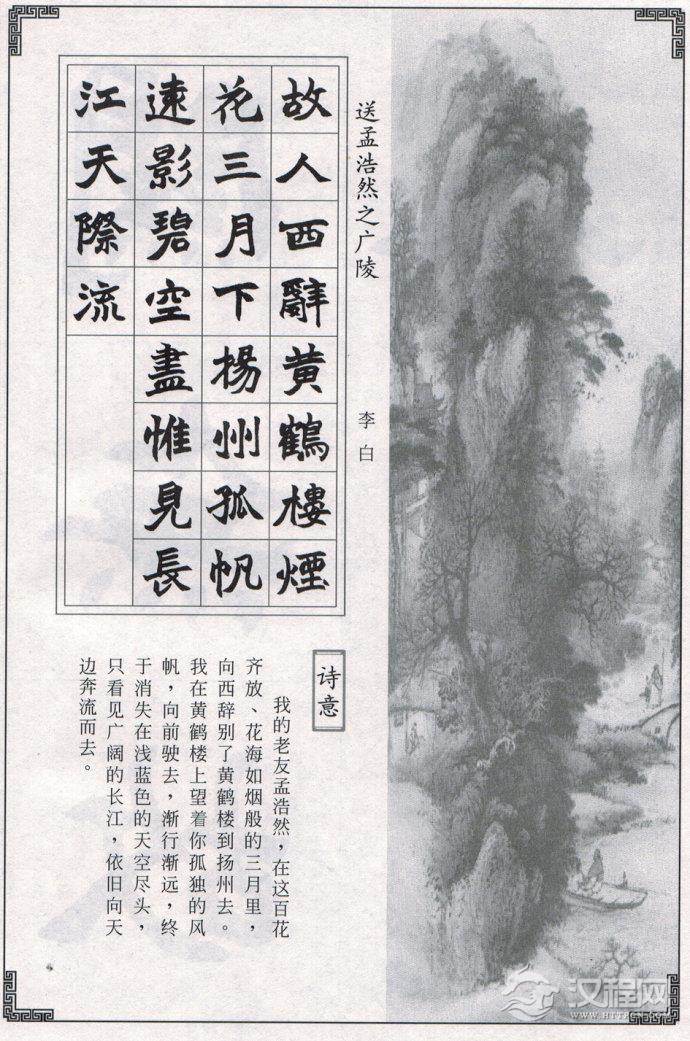 送孟浩然之广陵
李白
故人西辭黄鶴樓煙
花三月下楊州孤帆
遠影碧空盡惟見長
江天際流
诗意
我的老友孟浩然，在这百花
齐放、花海如烟般的三月里，
向西辞别了黄鹤楼到扬州去。
我在黄鹤楼上望着你孤独的风
帆，向前驶去，渐行渐远，终
于消失在浅蓝色的天空尽头，
只看见广阔的长江，依旧向天
边奔流而去。
汉程网
WWW.HTTPCN.COM